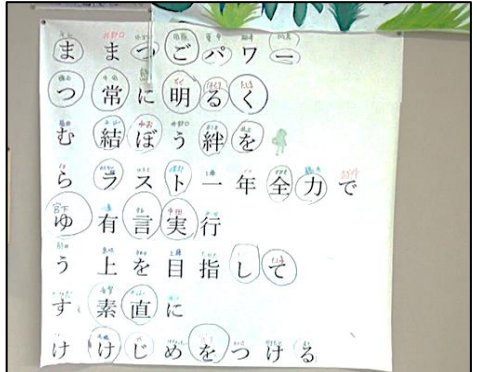 ま まつごパワー
つ 常に明るく
む 結ぼう絆を
ら ラスト一年全力で
ゆ 有言実行
う 上を目指して
す 素直に
け けじめをつける